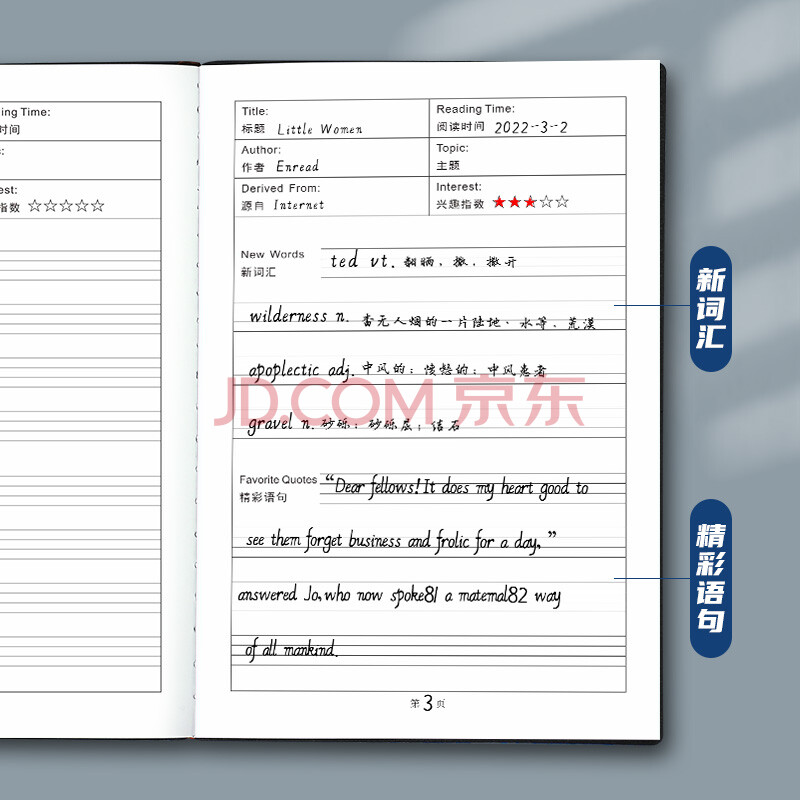 ing Time:
时间
:
est:
指数 ☆☆☆☆☆
Title:
标题 Little Women
Reading Time:
阅读时间 2022--3-2
Author:
作者 Enread
Topic:
主题
Derived From:
源自 Internet
Interest:
兴趣指数 ★★★☆☆
New Words
新词汇
ted vt. 翻晒、撒、撒开
wilderness n. 杳无人烟的一片陆地、水等、荒漠
apoplectic adj. 中风的；愤怒的；中风患者
gravel n. 砂砾；砂砾层；结石
JD.COM 京东
Favorite Quotes
精彩语句
“Dear fellows! It does my heart good to
see them forget business and frolic for a day,”
answered Jo, who now spoke81 a maternal82 way
of all mankind.
第3页
新词汇
精彩语句